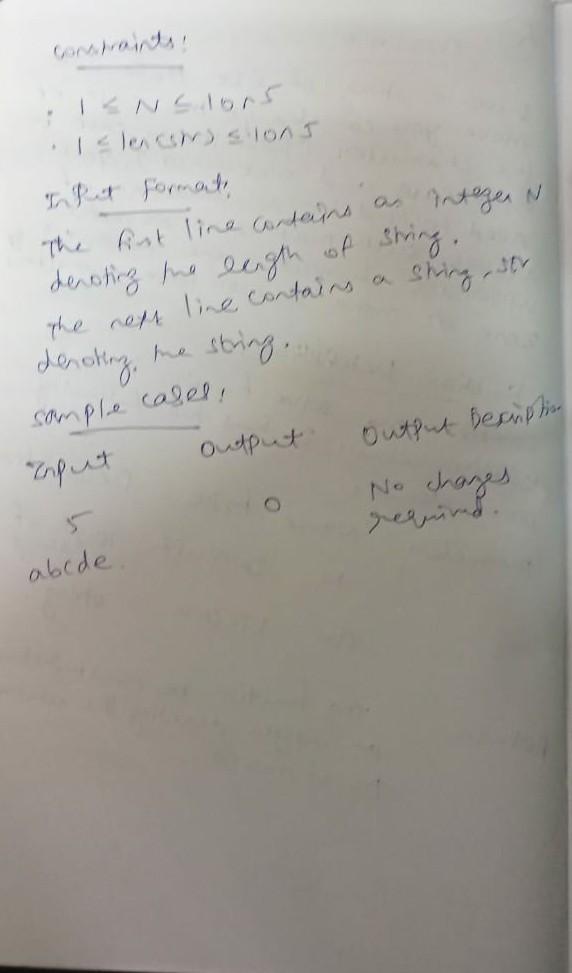 Constraints:
. 1 ≤ N ≤ 10^5
. 1 ≤ len(str) ≤ 10^5
Input Format:
The first line contains an integer N
denoting the length of string.
The next line contains a string, str
denoting the string.
sample cases:
Input Output Output Description
5 0 No changes
required.
abcde.